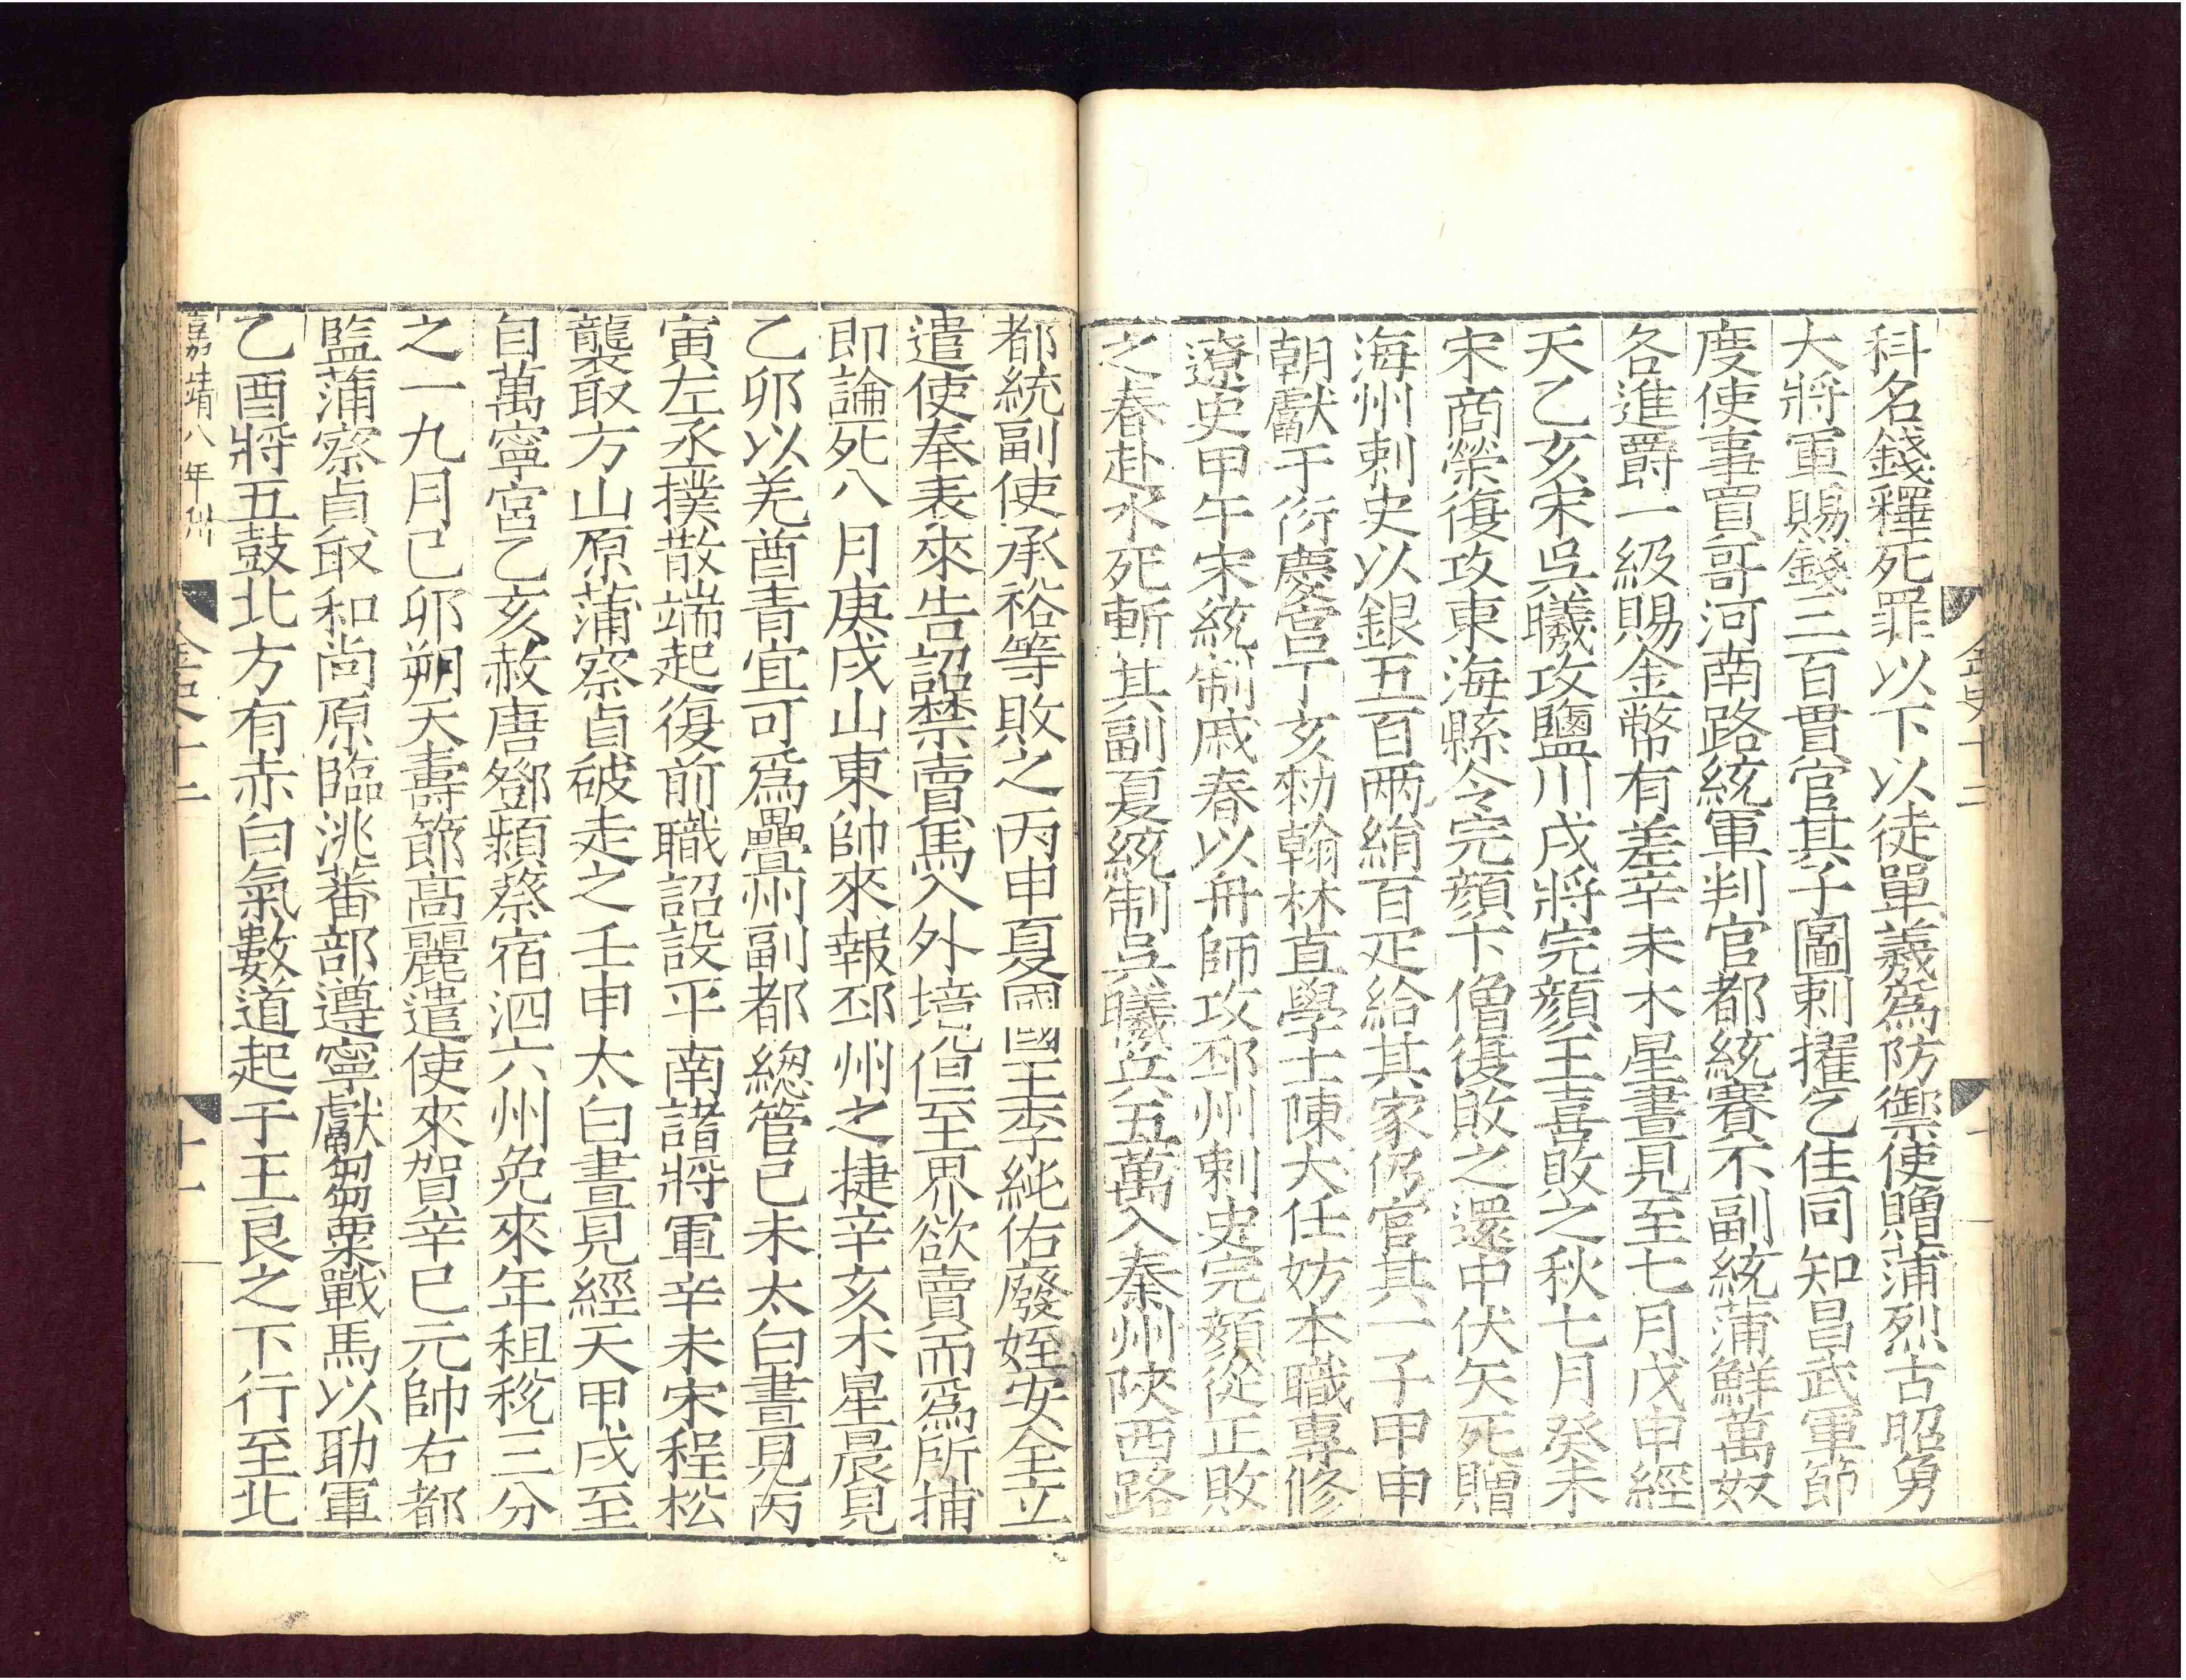 金史十二
十一
科名錢釋死罪以下以徒單羲為防禦使贈蒲烈古昭勇
大將軍賜錢三百貫官其子圖剌擢乞住同知昌武軍節
度使事買哥河南路統軍判官都統賽不副統蒲鮮萬奴
各進爵一級賜金幣有差辛未木星晝見至七月戊申經
天乙亥宋吳曦攻鹽川戍將完顏王喜敗之秋七月癸未
宋商榮復攻東海縣令完顏卞僧復敗之還中伏矢死贈
海州刺史以銀五百两絹百疋給其家仍官其一子甲申
朝獻于衍慶宮丁亥勑翰林直學士陳大任妨本職專修
遼史甲午宋統制戚春以舟師攻邳州刺史完顏從正敗
之春赴水死斬其副夏統制吳曦兵五萬入秦州陝西路
都統副使承裕等敗之丙申夏國王李純佑廢姪安全立
遣使奉表來告詔禁賣馬入外境但至界欲賣而為所捕
即論死八月庚戌山東帥來報邳州之捷辛亥木星晨見
乙卯以羌酋青宜可為疊州副都緫管己未太白晝見丙
寅左丞撲散端起復前職詔設平南諸將軍辛未宋程松
襲取方山原蒲察貞破走之壬申太白晝見經天甲戌至
自萬寧宮乙亥赦唐鄧潁蔡宿泗六州免來年租稅三分
之一九月己卯朔天壽節高麗遣使來賀辛巳元帥右都
監蒲察貞取和尚原臨洮蕃部遵寧獻芻粟戰馬以助軍
乙酉將五鼓北方有赤白氣數道起于王良之下行至北
嘉靖八年刊
金史十二
十一